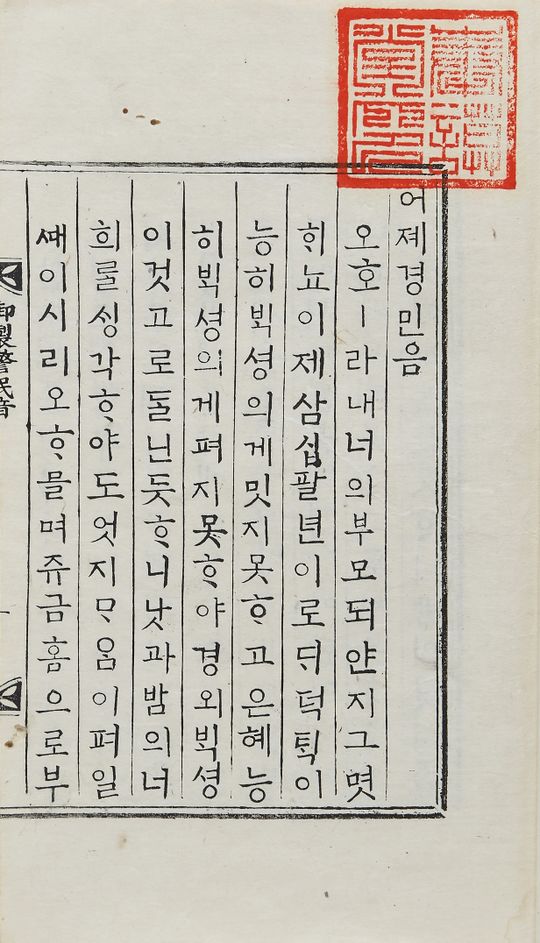 어졔경민음
오호ㅣ라내너의부모되얀지그몃
ᄒᆡ뇨이제삼십팔년이로ᄃᆡ덕ᄐᆡᆨ이
능히ᄇᆡᆨ셩의게밋지못ᄒᆞ고은혜능
히ᄇᆡᆨ셩의게펴지못ᄒᆞ야경외ᄇᆡᆨ셩
이것고로돌닌듯ᄒᆞ니낫과밤의너
희룰ᄉᆡᆼ각ᄒᆞ야도엇지ᄆᆞᄋᆞᆷ이펴일
ᄯᅢ이시리오ᄒᆞ믈며쥬금홈으로부
御製警民音